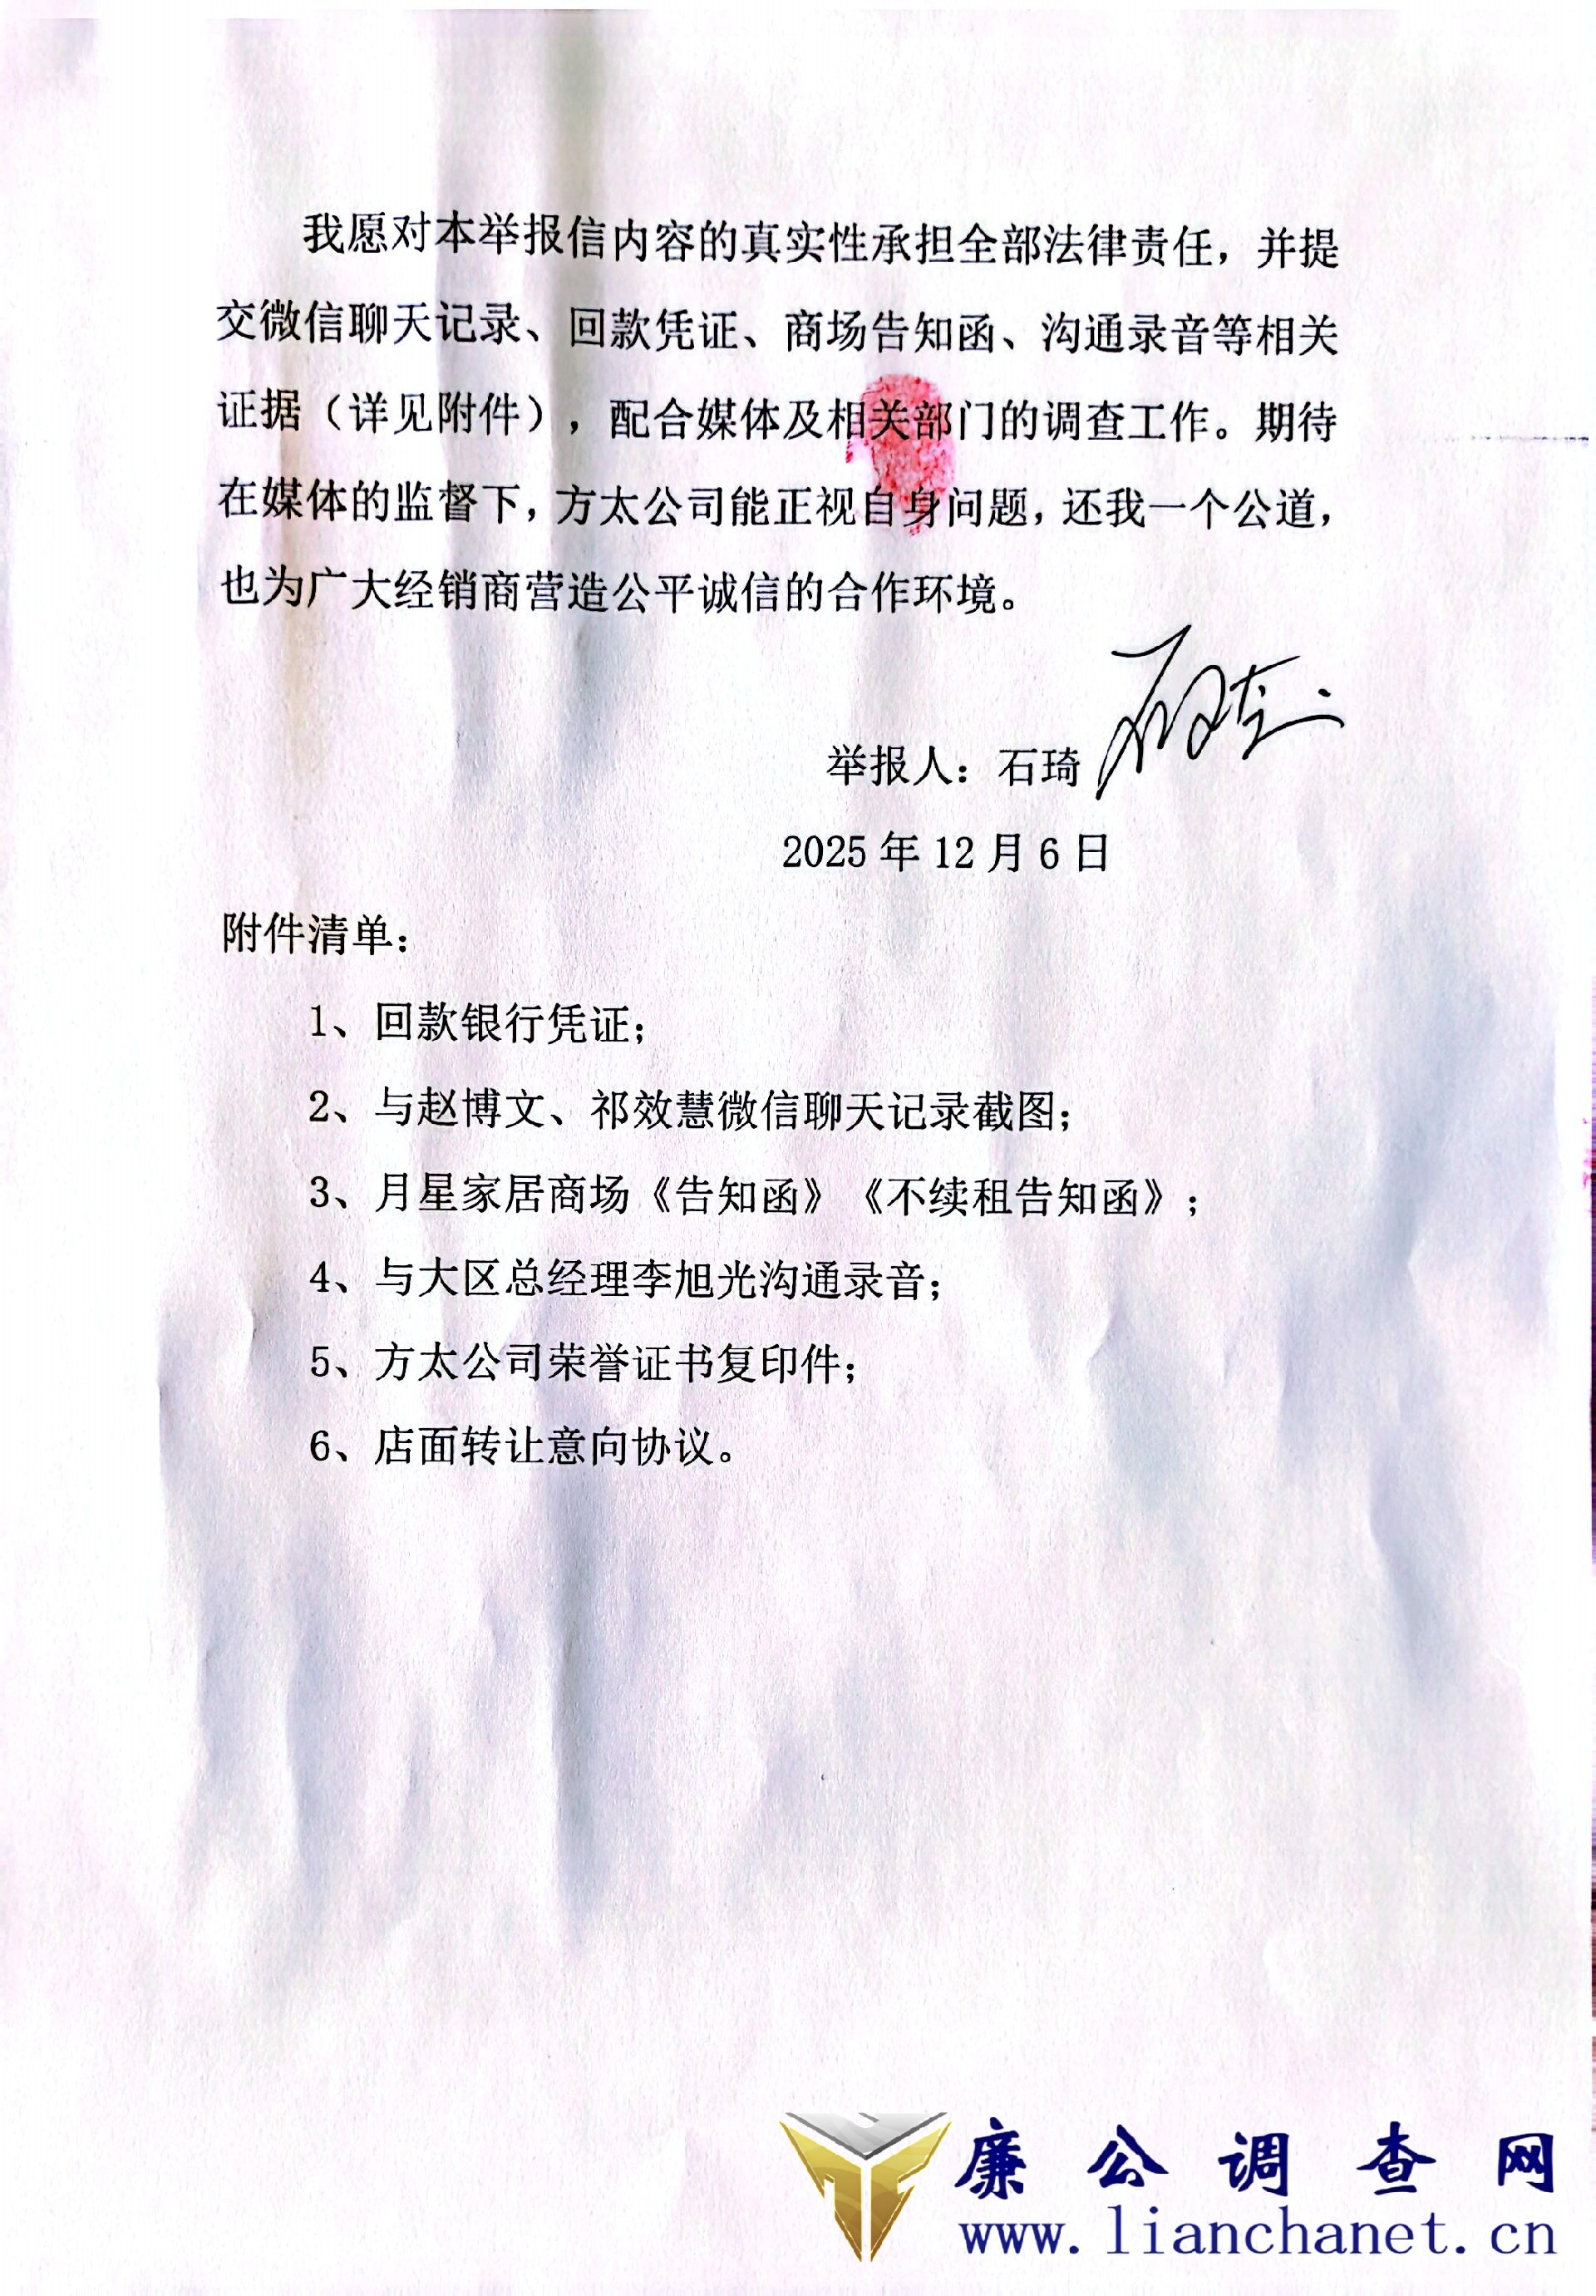 我愿对本举报信内容的真实性承担全部法律责任，并提
交微信聊天记录、回款凭证、商场告知函、沟通录音等相关
证据（详见附件），配合媒体及相关部门的调查工作。期待
在媒体的监督下，方太公司能正视自身问题，还我一个公道，
也为广大经销商营造公平诚信的合作环境。
举报人：石琦
2025年12月6日
附件清单：
1、回款银行凭证；
2、与赵博文、祁效慧微信聊天记录截图；
3、月星家居商场《告知函》《不续租告知函》；
4、与大区总经理李旭光沟通录音；
5、方太公司荣誉证书复印件；
6、店面转让意向协议。
廉公调查网
www.lianchanet.cn